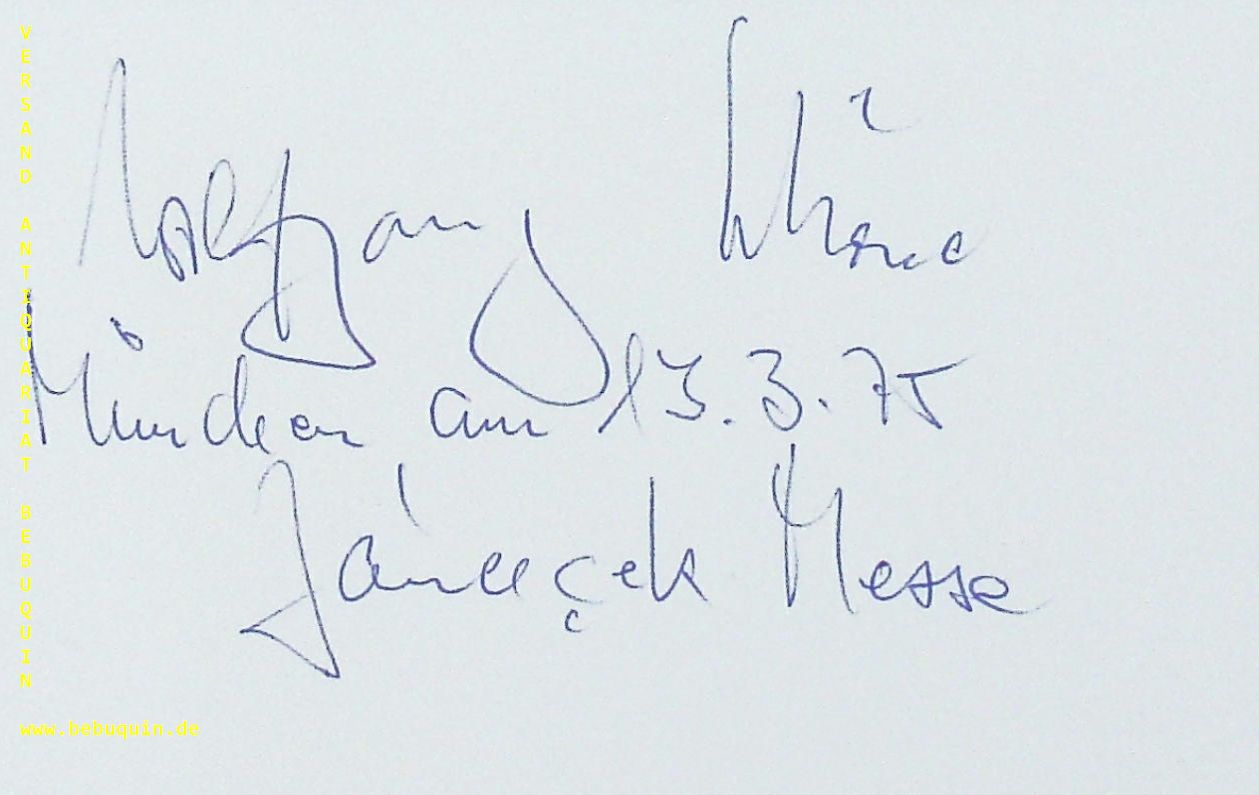 Wolfgang Schöne
München am 13.3.75
Jánaçek Messe
VERSAND ANTIQUARIAT BEBUQUIN
www.bebuquin.de